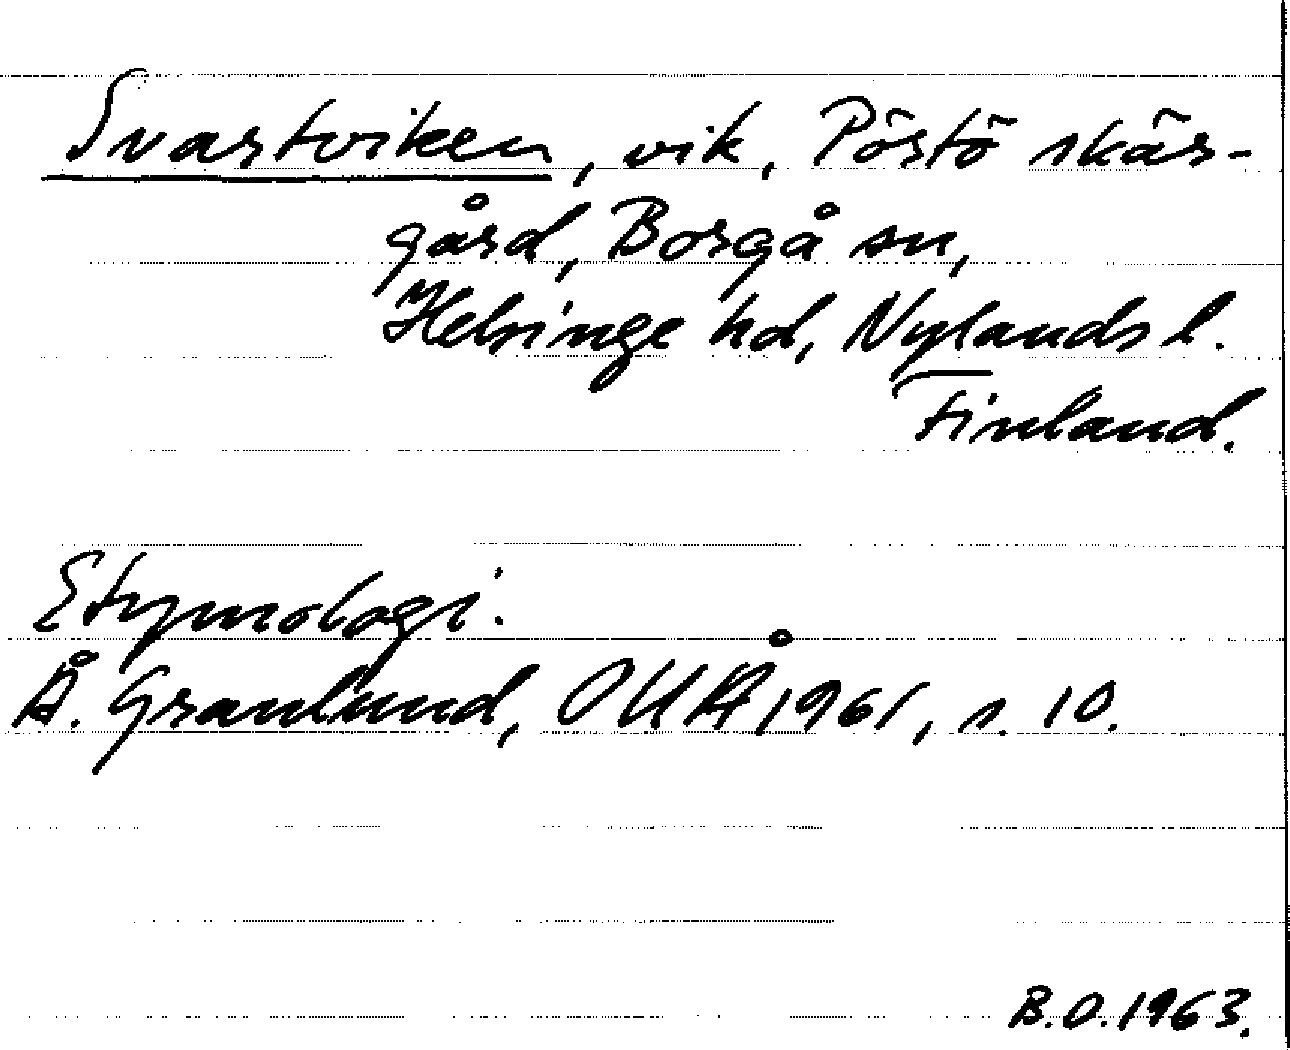 Svartviken, vik, Pörtö skär-
gård, Borgå sn,
Helsinge hd, Nylands l.
Finland.
Etymologi.
Å. Granlund, OUÅ 1961, s. 10.
B.O.1963.